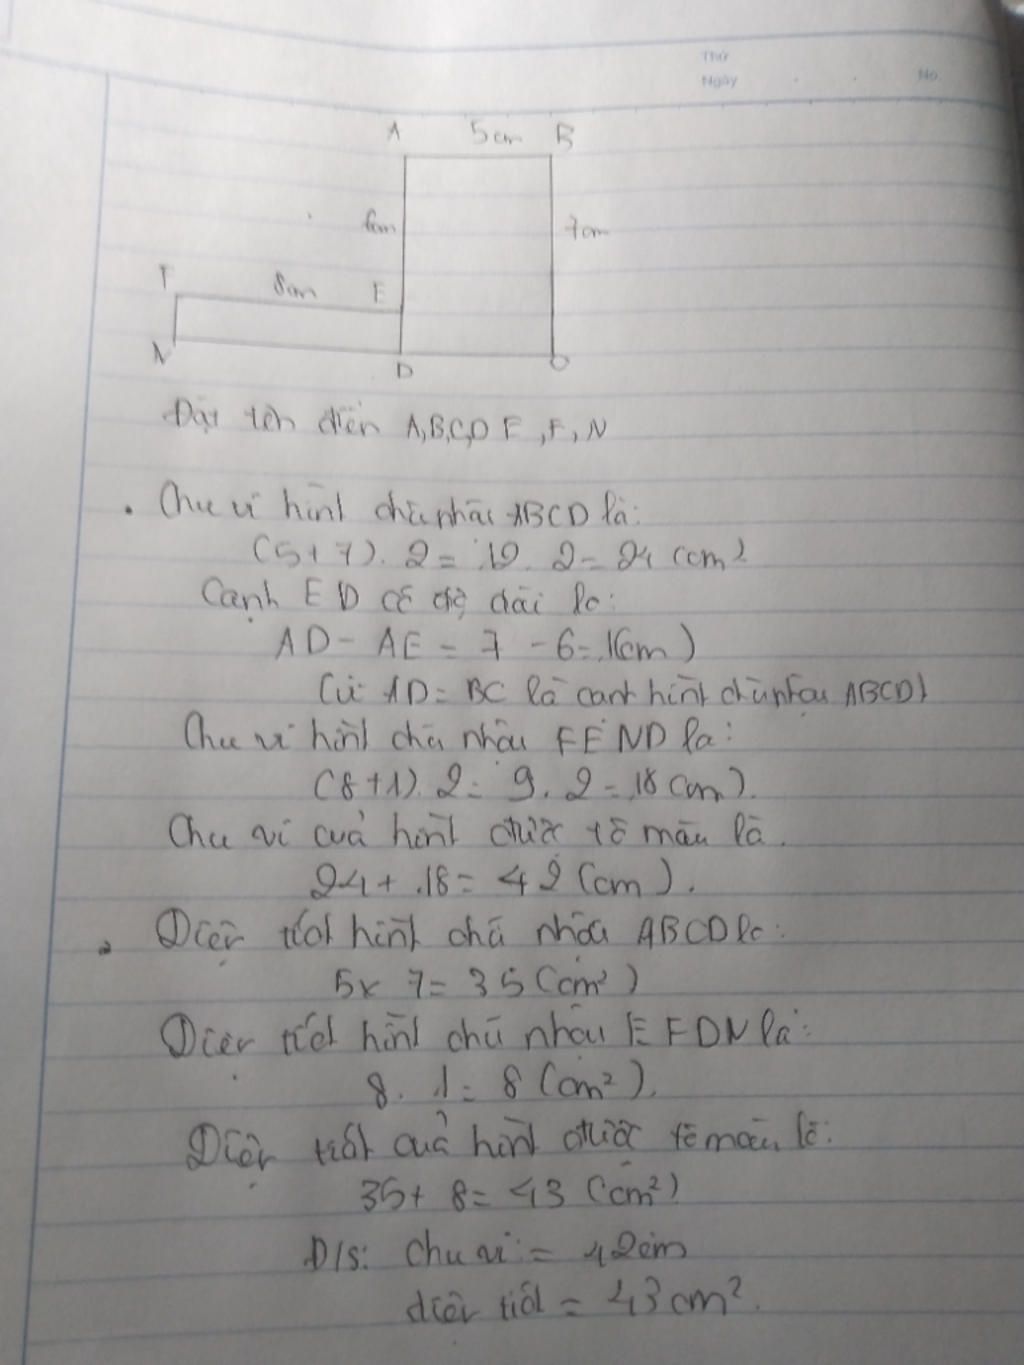 Thứ
Ngày No.
A 5cm B
6cm 7cm
F 8cm E
N D
Đặt tên điểm A,B,C,D E, F, N
Chu vi hình chữ nhật ABCD là:
(5+7). 2 = 12. 2 = 24 (cm)
Cạnh ED có độ dài là:
AD - AE = 7 - 6 = 1(cm)
(vì AD = BC là cạnh hình chữ nhật ABCD)
Chu vi hình chữ nhật FEND là:
(8+1). 2 = 9. 2 = 18 (cm).
Chu vi của hình được tô màu là.
24 + 18 = 42 (cm).
Diện tích hình chữ nhật ABCD là:
5 x 7 = 35 (cm²)
Diện tích hình chữ nhật EFDN là:
8. 1 = 8 (cm²).
Diện tích của hình được tô màu là:
35 + 8 = 43 (cm²)
Đ/S: Chu vi = 42cm
diện tích = 43 cm².